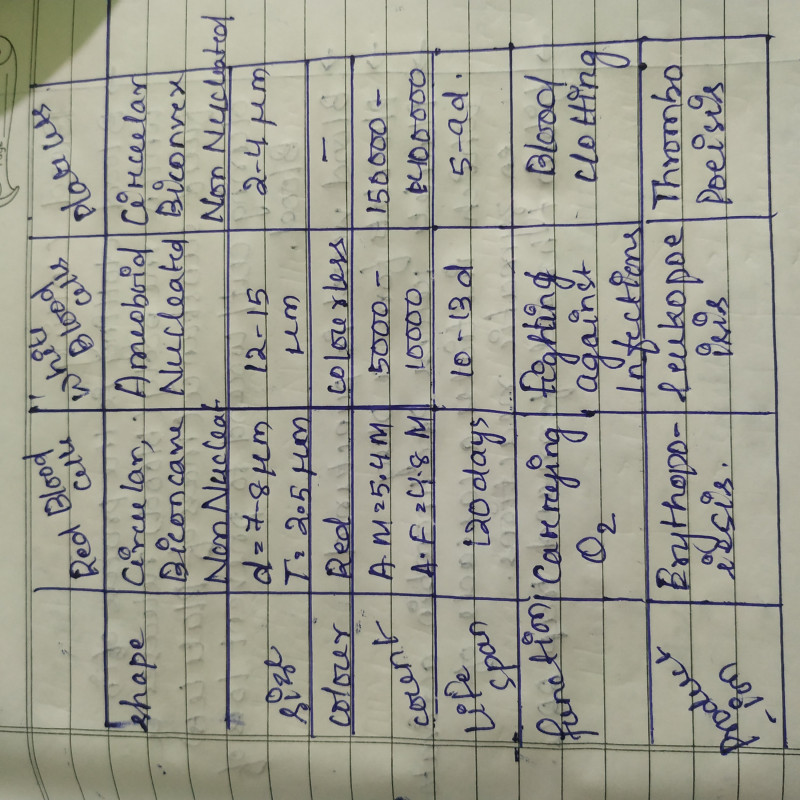 Red Blood
Cells
White
Blood
cells
Platelets
shape
Circular,
Biconcave
Non Nucleat
Amoeboid
Nucleated
Circular
Biconvex
Non Nucleated
size
d=7-8 μm
T=2.5 μm
12-15
μm
2-4 μm
colour
Red
colourless
-
count
A M=5.4 M
A.F=4.8 M
5000-
10000
150000-
400000
Life
span
120 days
10-13d
5-9d.
function
Carrying
O2
Fighting
against
Infections
Blood
clotting
Product
ion
Erythopo-
iesis.
Leukopoe
isis
Thrombo
poeisis